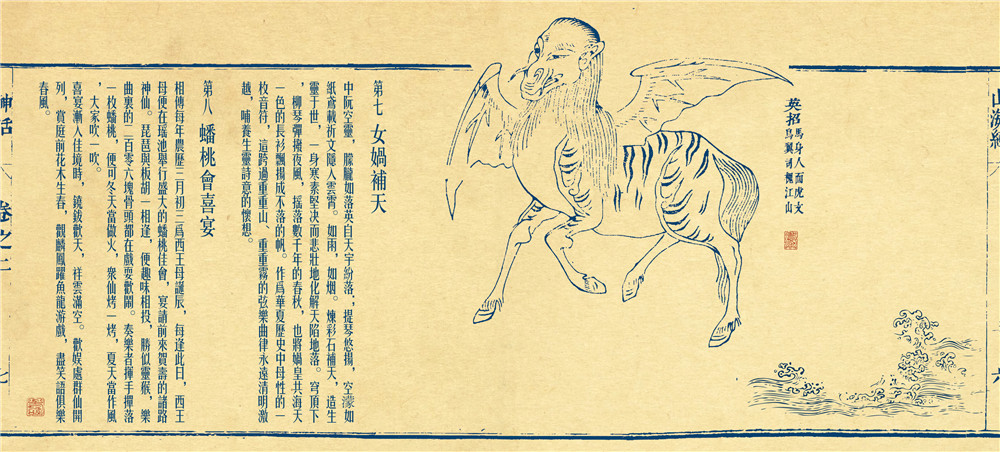 山海經
六
英招
馬身人面虎文
鳥翼詞槐江山
第七 女媧補天
中阮空靈，朦朧如落英自天宇紛落；提琴悠揚，空濛如
紙鳶載祈文隱入雲霄。如雨，如烟。煉彩石補天，造生
靈于世，一身寒素堅决而悲壯地化解天陷地落。穹頂下
，柳琴彈撥夜風，摇落數千年的春秋，也將媧皇共海天
一色的長衫飄揚成不落的帆。作爲華夏歷史中母性的一
枚音符，這跨過重重山、重重霧的弦樂曲律永遠清明激
越，哺養生靈詩意的懷想。
第八 蟠桃會喜宴
相傳每年農歷三月初三爲西王母誕辰，每逢此日，西王
母便在瑶池舉行盛大的蟠桃佳會，宴請前來賀壽的諸路
神仙。琵琶與板胡一相逢，便趣味相投，勝似靈猴，樂
曲裏的二百零六塊骨頭都在戲耍歡鬧。奏樂者揮手撣落
一枚蟠桃，便可冬天當做火，衆仙烤一烤，夏天當作風
，大家吹一吹。
喜宴漸入佳境時，鐃鈸歡天，祥雲滿空。歡娱處群仙開
列，賞庭前花木生春，觀麟鳳躍魚龍游戲，盡笑語俱樂
春風。
神話
卷之二
七